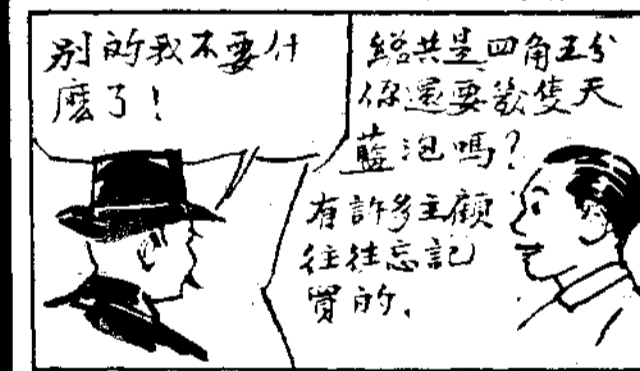 別的我不要什
麼了!
總共是四角五分
你還要幾隻天
藍泡嗎?
有許多主顧
往往忘記
買的.